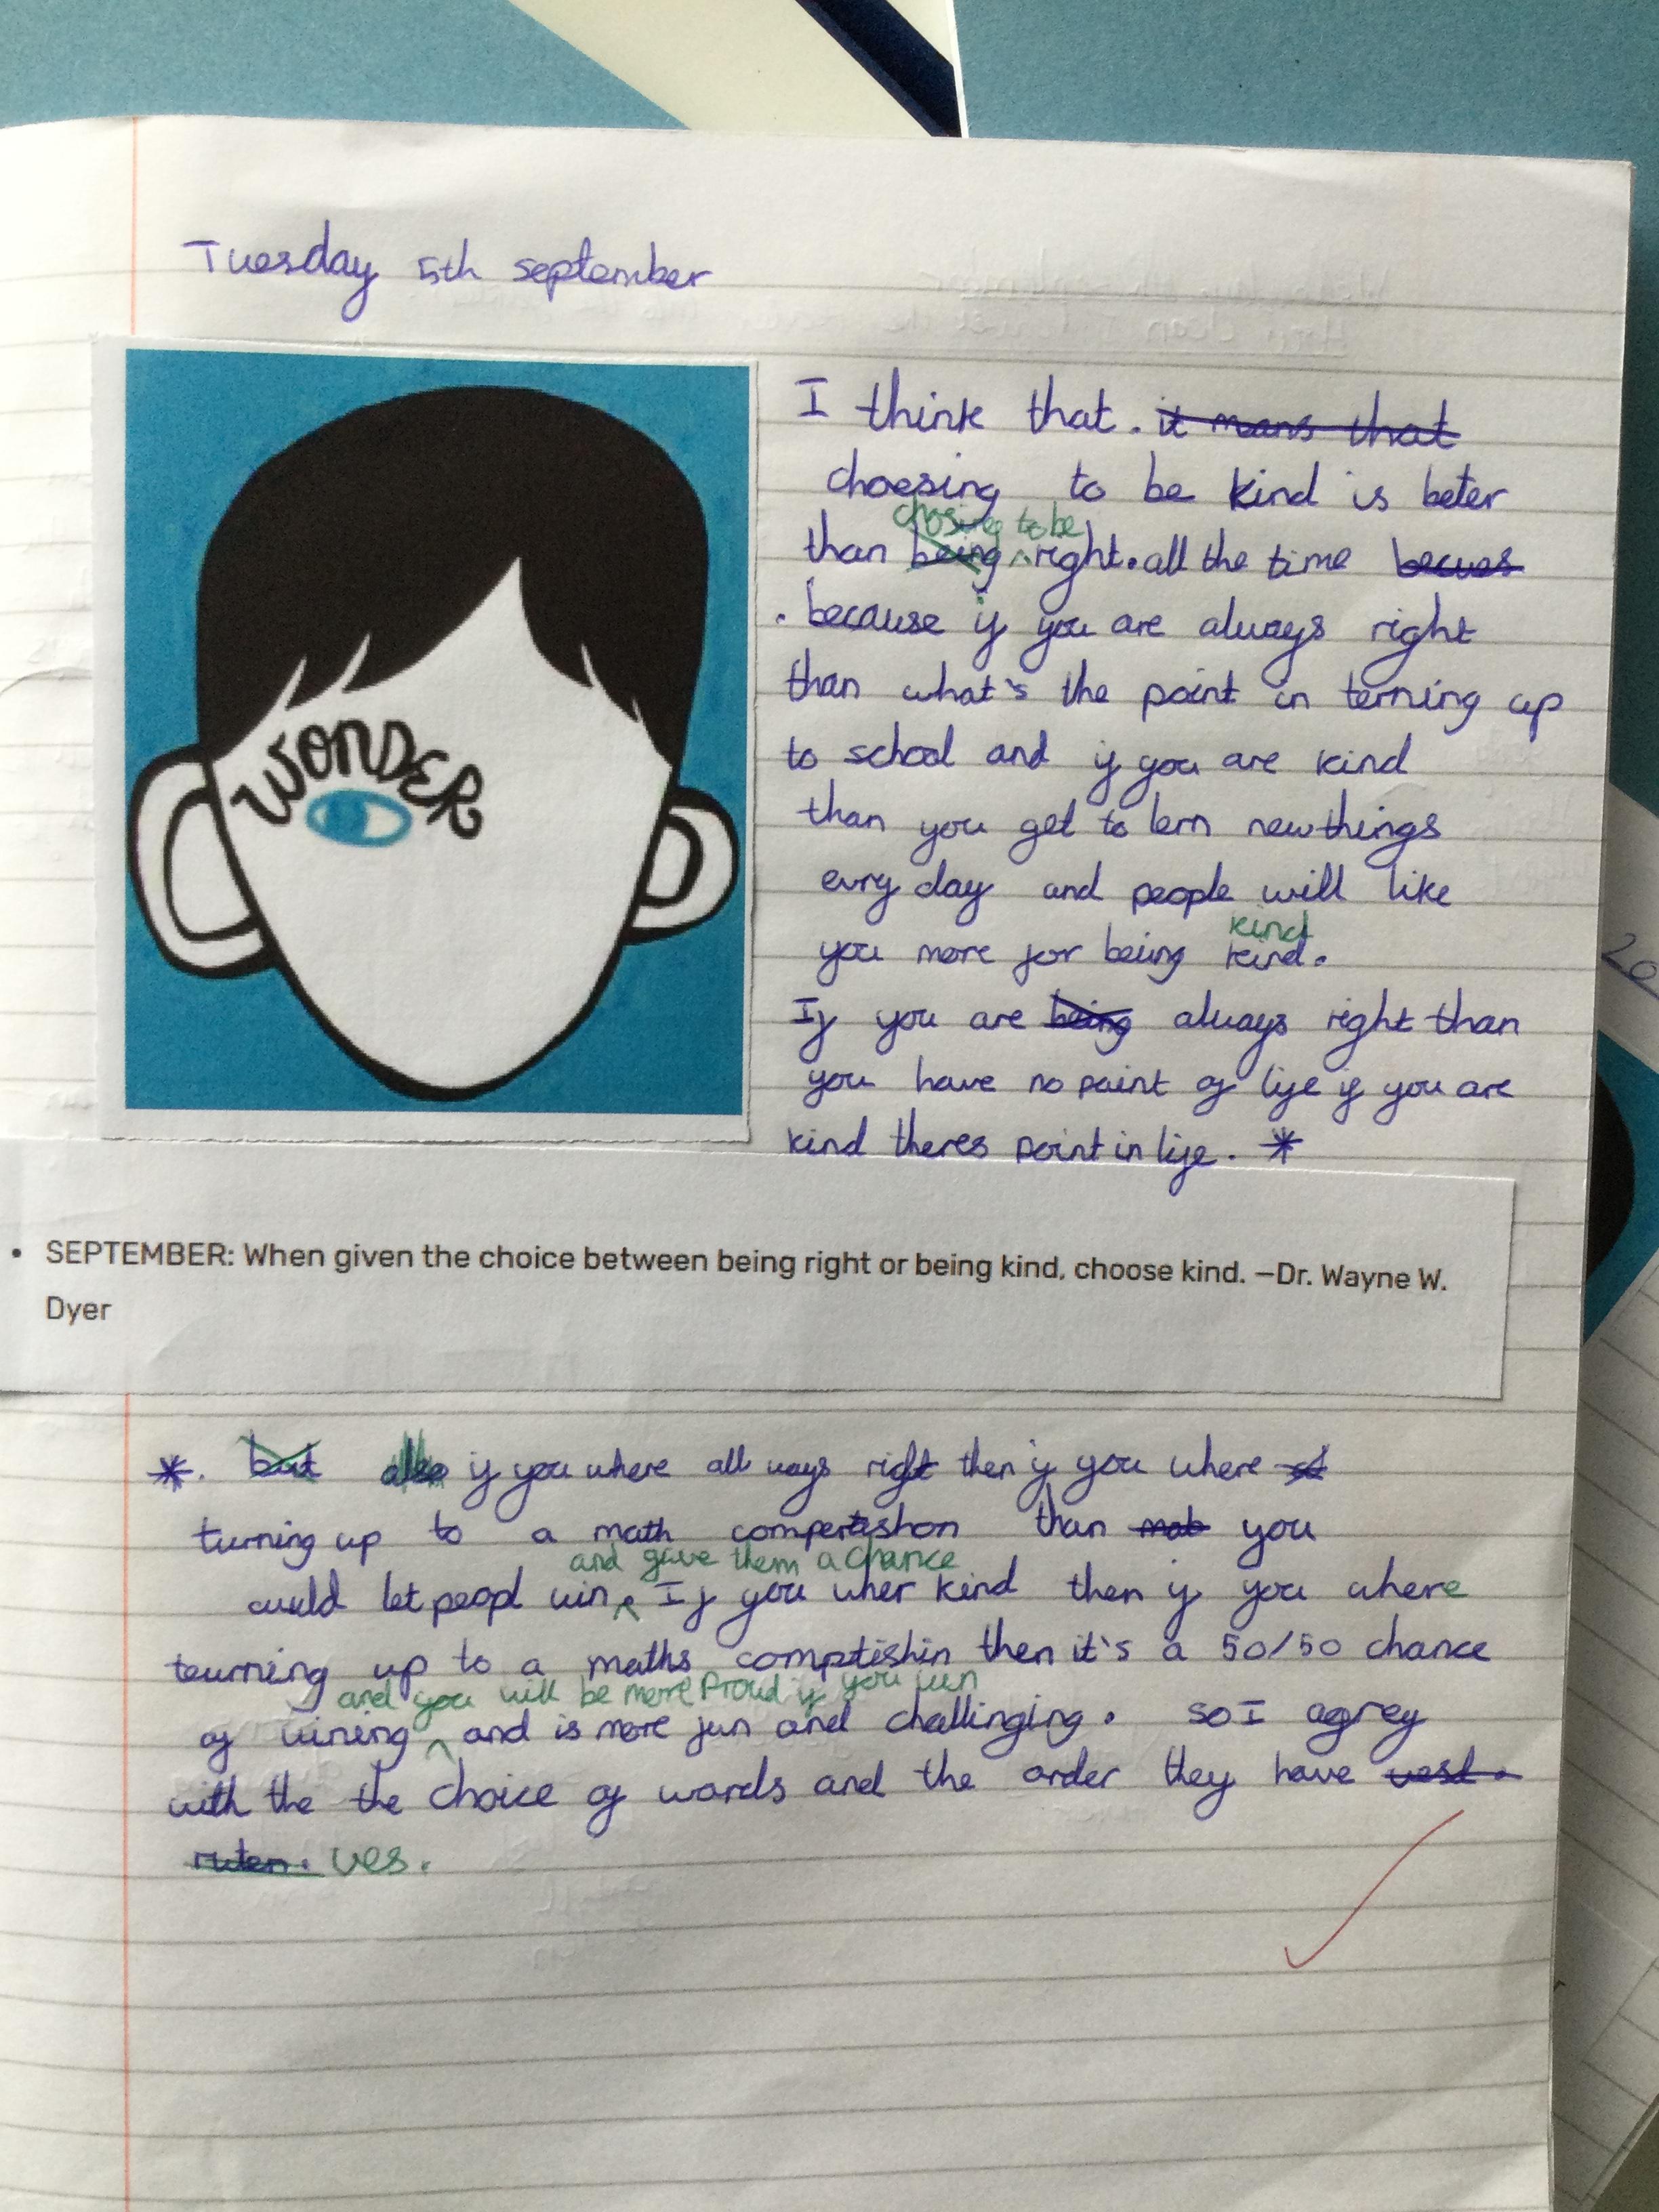 Tuesday 5th september
WONDER
I think that. it mans that
choesing to be kind is beter
chosing to be
than being right. all the time becues
. because if you are always right
than what's the point in terning up
to school and if you are kind
than you get to lern new things
evry day and people will like
kind
you more for being keind.
If you are being always right than
you have no point of life if you are
kind theres point in life. *
• SEPTEMBER: When given the choice between being right or being kind, choose kind. —Dr. Wayne W.
Dyer
*. but also if you where all ways right then if you where
turning up to a math compertishon than you
and gave them a chance
could let peopl win. If you wher kind then if you where
teurning up to a maths comptishin then it's a 50/50 chance
and you will be more Proud if you wun
of wining and is more fun and challinging. so I agrey
with the the choice of words and the order they have
ves.